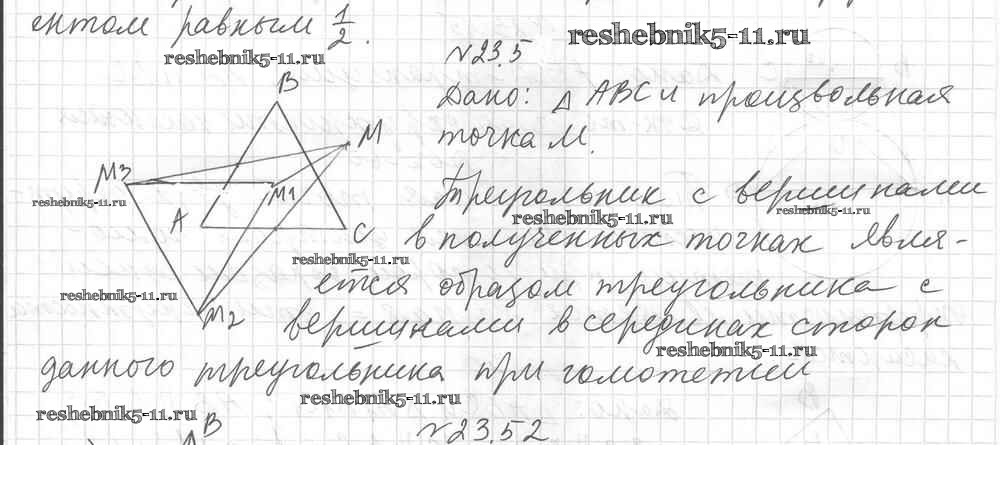 ентом равным 1/2.
reshebnik5-11.ru
reshebnik5-11.ru
N 23.5
B
Дано: Δ ABC и произвольная
M
точка M.
M3
M1
Треугольник с вершинами
reshebnik5-11.ru
reshebnik5-11.ru
reshebnik5-11.ru
A
C
в полученных точках явля-
reshebnik5-11.ru
ется образом треугольника с
reshebnik5-11.ru
M2
вершинами в серединах сторон
reshebnik5-11.ru
данного треугольника при гомотетии
reshebnik5-11.ru
reshebnik5-11.ru
B
N 23.52